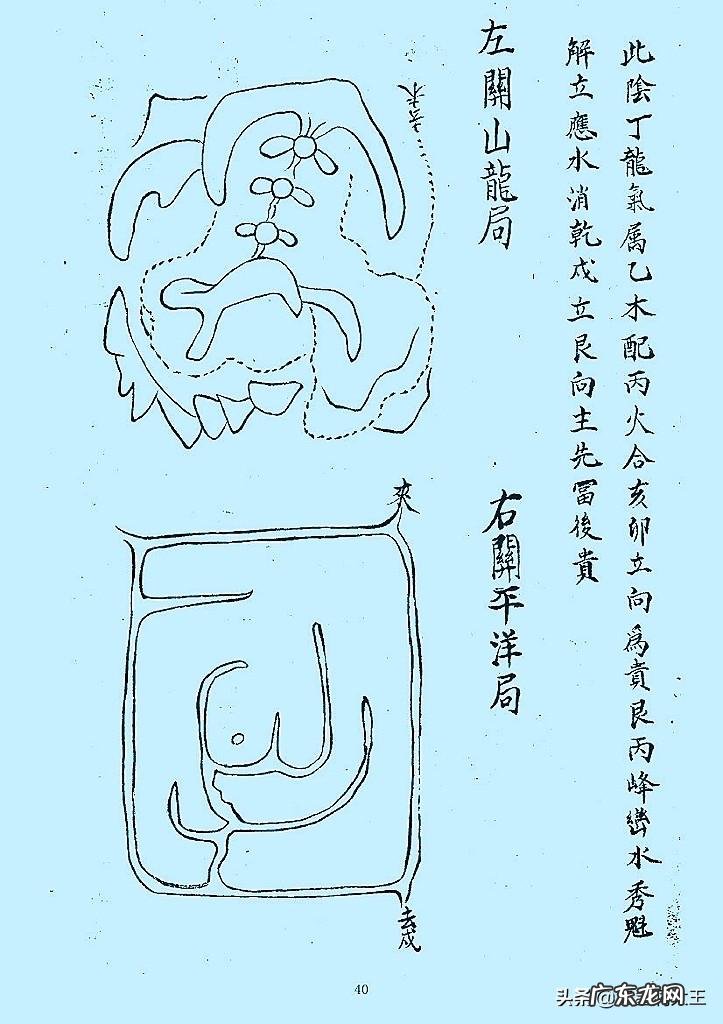 此陰丁龍氣属乙木配丙火合亥卯立向爲貴艮丙峰巒水秀魁
解立應水消乾戌立艮向主先冨後貴
左關山龍局
右關平洋局
去戌
40
头条@
广东龙网
王